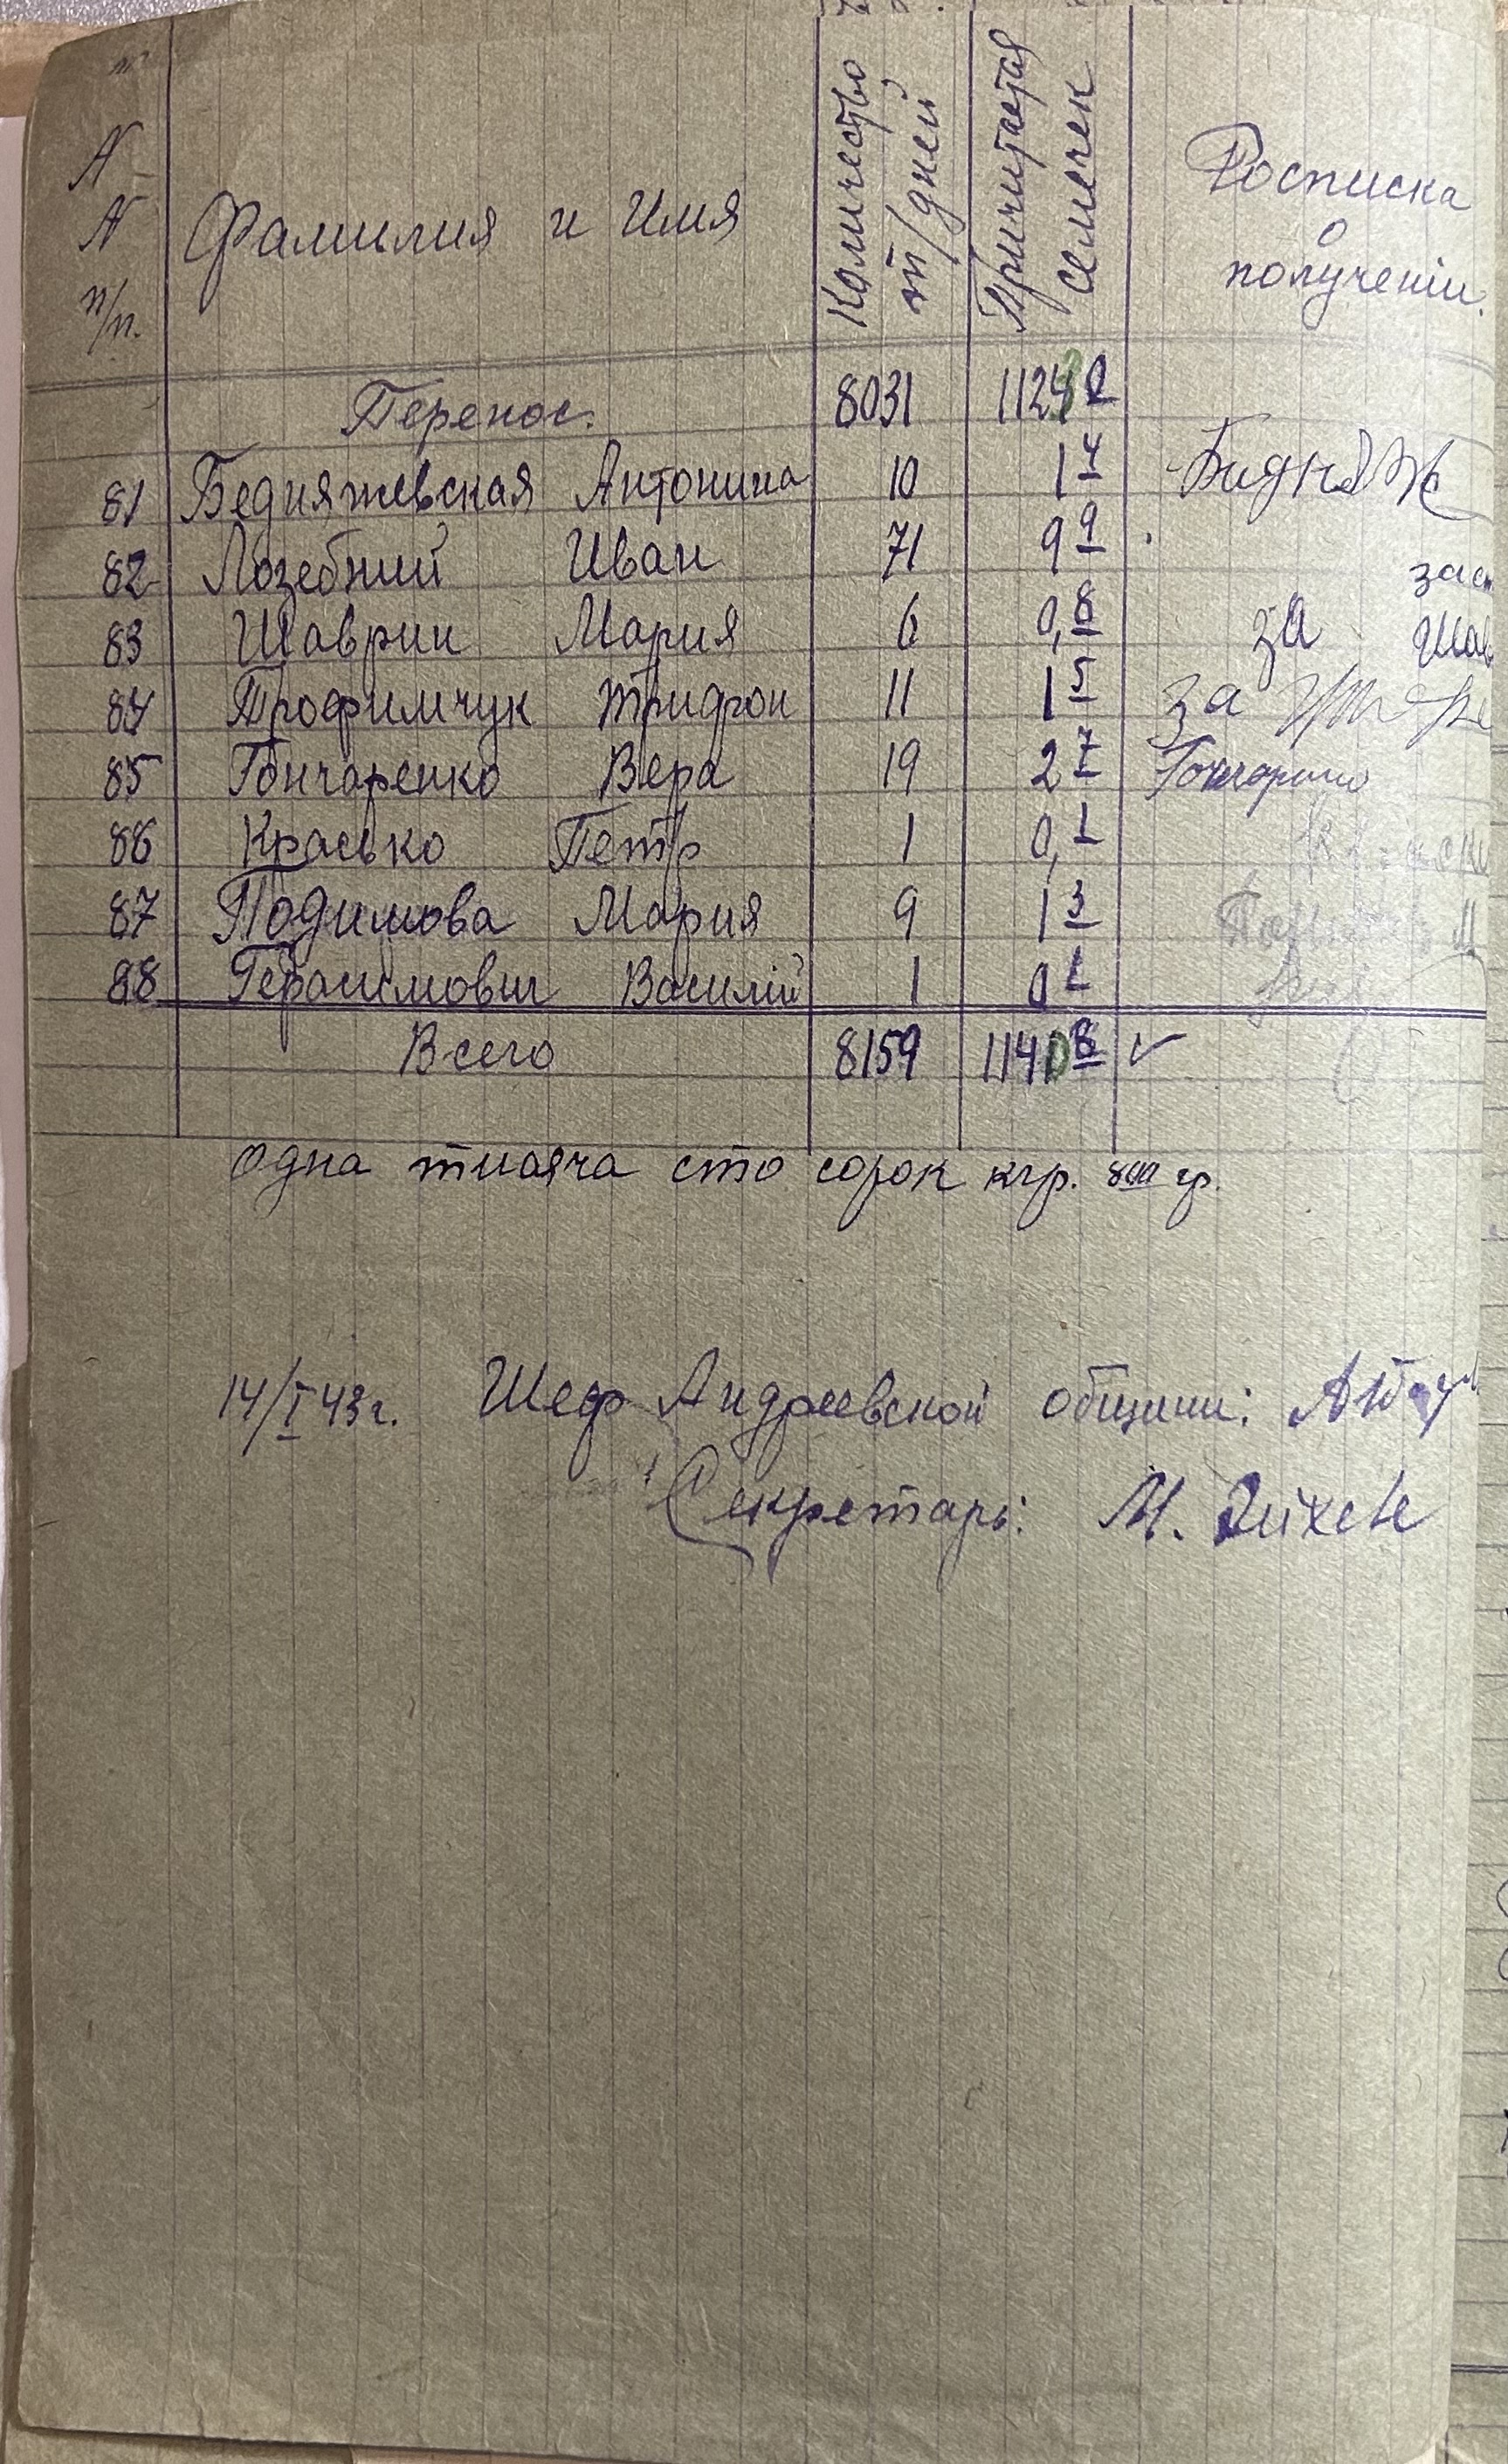 N N п/п. Фамилия и Имя Количество т/дней Причитается семечек Росписка о получении.
Перенос. 8031 1123 0
81 Бедняжевская Антонина 10 1 4 Бидняж
82 Лозебний Иван 71 9 9
83 Шаврин Мария 6 0,8 за Шав
84 Трофимчук Тридрон 11 1 5 за
85 Гончаренко Вера 19 2 7 Гончаренко
86 Красько Петр 1 0,1
87 Подимова Мария 9 1 3
88 Герасимович Василий 1 0 1
Всего 8159 1140 8
одна тисяча сто сорок кгр. 800 гр.
14/I 43 г. Шеф Андреевской общини:
Секретарь: М.